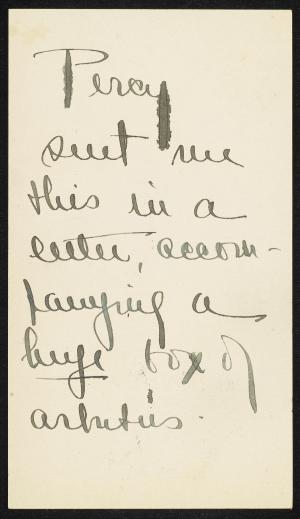 Percy
sent me
this in a
letter, accom-
panying a
huge box of
arbutus.